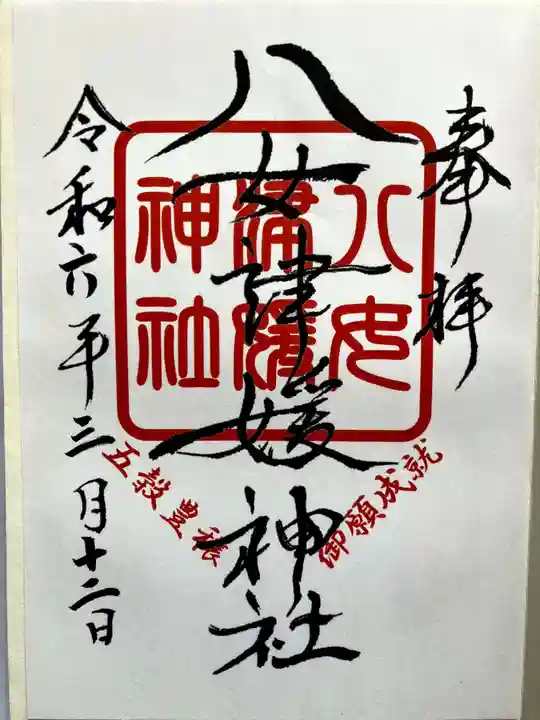 奉拝
八女津媛神社
八女
津媛
神社
御願成就
五穀豊穣
令和六年三月十二日